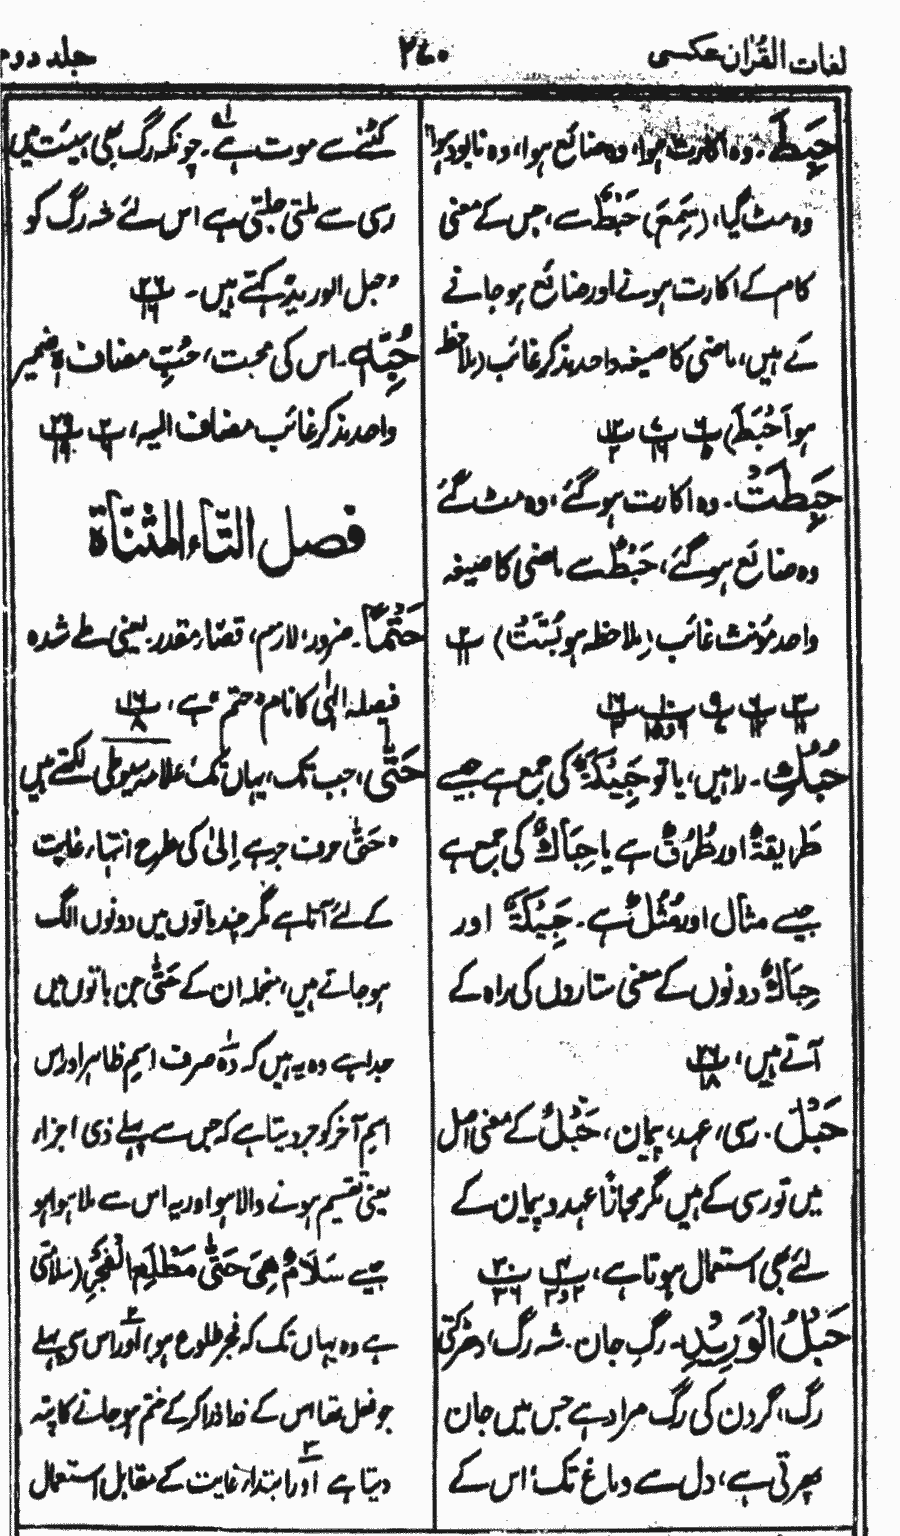 لغات القرآن عکسی ۲۷۰ جلد دوم
حَبِطَ۔ وہ اکارت ہوا، وہ ضائع ہوا، وہ نابود ہوا
وہ مٹ گیا، (سَمِعَ) حَبْطٌ سے، جس کے معنی
کام کے اکارت ہونے اور ضائع ہو جانے
کے ہیں، ماضی کا صیغہ واحد مذکر غائب (ملاحظہ
ہو اَحْبَطَ)
حَبِطَتْ۔ وہ اکارت ہوگئے، وہ مٹ گئے
وہ ضائع ہوگئے، حَبْطٌ سے ماضی کا صیغہ
واحد مؤنث غائب (ملاحظہ ہو
حُبُكِ۔ راہیں، یا تو حَبِیْكَةٌ کی جمع ہے جیسے
طَرِیْقَةٌ اور طُرُقٌ ہے یا حِبَاكٌ کی جمع ہے
جیسے مثال اور مُثُلٌ ہے۔ حَبِیْكَةٌ اور
حِبَاكٌ دونوں کے معنی ستاروں کی راہ کے
آتے ہیں،
حَبْلٌ۔ رسی، عہد، پیمان، حَبْلٌ کے معنی اصل
میں تو رسی کے ہیں مگر مجازًا عہد و پیمان کے
لئے بھی استعمال ہوتا ہے،
حَبْلُ الْوَرِیْدِ۔ رگِ جان۔ شہ رگ، دھڑکتی
رگ، گردن کی رگ مراد ہے جس میں جان
پھرتی ہے، دل سے دماغ تک، اس کے
کٹنے سے موت ہے۔ چونکہ رگ بھی ہیئت میں
رسی سے ملتی جلتی ہے اس لئے شہ رگ کو
حبل الورید کہتے ہیں۔ ۲۶/۱۶
حُبِّهٖ۔ اس کی محبت، حُبِّ مضاف ہٖ ضمیر
واحد مذکر غائب مضاف الیہ،
فصل التّاء المثنّاة
حَتْمًا۔ ضرور، لازم، قضاء مقدر۔ یعنی طے شدہ
فیصلہ الٰہی کا نام حتم ہے، ۱۶/۸
حَتّٰی، جب تک، یہاں تک، علامہ سیوطی لکھتے ہیں
حَتّٰی حرف جر ہے اِلیٰ کی طرح انتہاء غایت
کے لئے آتا ہے مگر چند باتوں میں دونوں الگ
ہو جاتے ہیں، منجملہ ان کے حَتّٰی جن باتوں میں
جدا ہے وہ یہ ہیں کہ وہ صرف اسم ظاہر اور اس
اسم آخر کو جر دیتا ہے کہ جس سے پہلے ذی اجزاء
یعنی تقسیم ہونے والا ہو اور یہ اس سے ملا ہوا ہو
جیسے سَلَامٌ هِیَ حَتّٰی مَطْلَعِ الْفَجْرِ (سلامتی
ہے وہ یہاں تک کہ فجر طلوع ہو)، اور اس سے پہلے
جو فعل تھا اس کے ذرا ذرا کرکے ختم ہو جانے کا پتہ
دیتا ہے اور ابتداء غایت کے مقابل استعمال